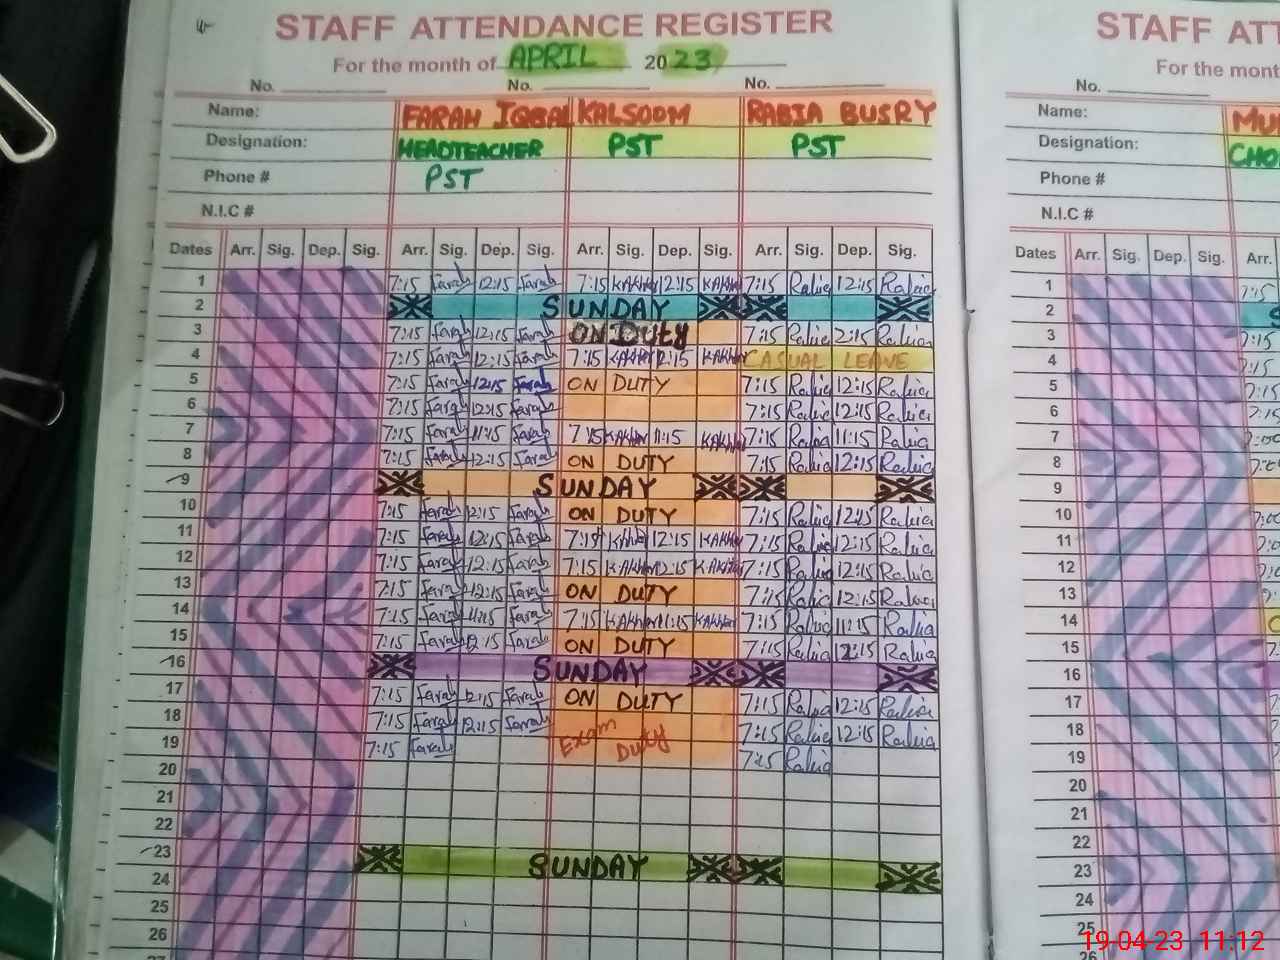 STAFF ATTENDANCE REGISTER
For the month of APRIL 2023
No. No. No.
Name: FARAH IQBAL KALSOOM RABIA BUSRY
Designation: HEADTEACHER PST PST
Phone # PST
N.I.C #
Dates Arr. Sig. Dep. Sig. Arr. Sig. Dep. Sig. Arr. Sig. Dep. Sig. Arr. Sig. Dep. Sig.
1 7:15 Farah 12:15 Farah 7:15 12:15 7:15 Rabia 12:15 Rabia
2 SUNDAY
3 7:15 Farah 12:15 Farah ON DUTY 7:15 Rabia 2:15 Rabia
4 7:15 Farah 12:15 Farah 7:15 12:15 CASUAL LEAVE
5 7:15 Farah 12:15 Farah ON DUTY 7:15 Rabia 12:15 Rabia
6 7:15 Farah 12:15 Farah 7:15 Rabia 12:15 Rabia
7 7:15 Farah 11:15 Farah 7:15 11:15 7:15 Rabia 11:15 Rabia
8 7:15 Farah 12:15 Farah ON DUTY 7:15 Rabia 12:15 Rabia
9 SUNDAY
10 7:15 Farah 12:15 Farah ON DUTY 7:15 Rabia 12:15 Rabia
11 7:15 Farah 12:15 Farah 7:15 12:15 7:15 Rabia 12:15 Rabia
12 7:15 Farah 12:15 Farah 7:15 12:15 7:15 Rabia 12:15 Rabia
13 7:15 Farah 12:15 Farah ON DUTY 7:15 Rabia 12:15 Rabia
14 7:15 Farah 11:15 Farah 7:15 11:15 7:15 Rabia 11:15 Rabia
15 7:15 Farah 12:15 Farah ON DUTY 7:15 Rabia 12:15 Rabia
16 SUNDAY
17 7:15 Farah 12:15 Farah ON DUTY 7:15 Rabia 12:15 Rabia
18 7:15 Farah 12:15 Farah Exam Duty 7:15 Rabia 12:15 Rabia
19 7:15 Farah 7:15 Rabia
20
21
22
23 SUNDAY
24
25
26
STAFF ATT
For the mont
No.
Name: MU
Designation: CHO
Phone #
N.I.C #
Dates Arr. Sig. Dep. Sig. Arr.
1 7:15
2 S
3 7:15
4
5
6
7
8
9
10
11
12
13
14
15
16
17
18
19
20
21
22
23
24
25
19-04-23 11:12